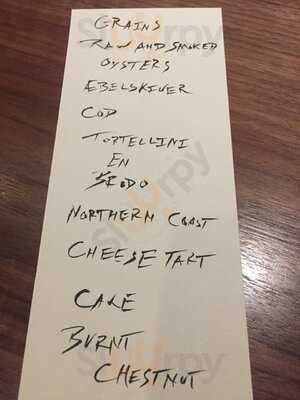 GRAINS
RAW AND SMOKED
OYSTERS
ÆBELSKIVER
COD
TORTELLINI
EN
BRODO
NORTHERN COAST
CHEESE TART
CAKE
BURNT
CHESTNUT